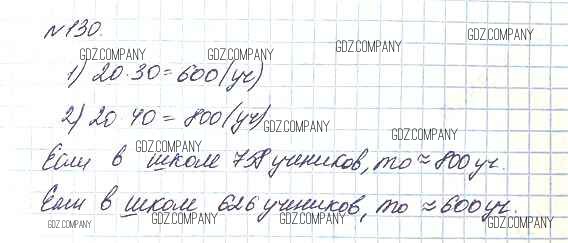 №130.
GDZ.COMPANY GDZ.COMPANY GDZ.COMPANY GDZ.COMPANY
1) 20·30=600(уч)
2) 20 40=800(уч)
GDZ.COMPANY GDZ.COMPANY GDZ.COMPANY
Если в школе 758 учеников, то ≈800уч.
GDZ.COMPANY GDZ.COMPANY
Если в школе 626 учеников, то ≈600уч.
GDZ.COMPANY GDZ.COMPANY GDZ.COMPANY GDZ.COMPANY